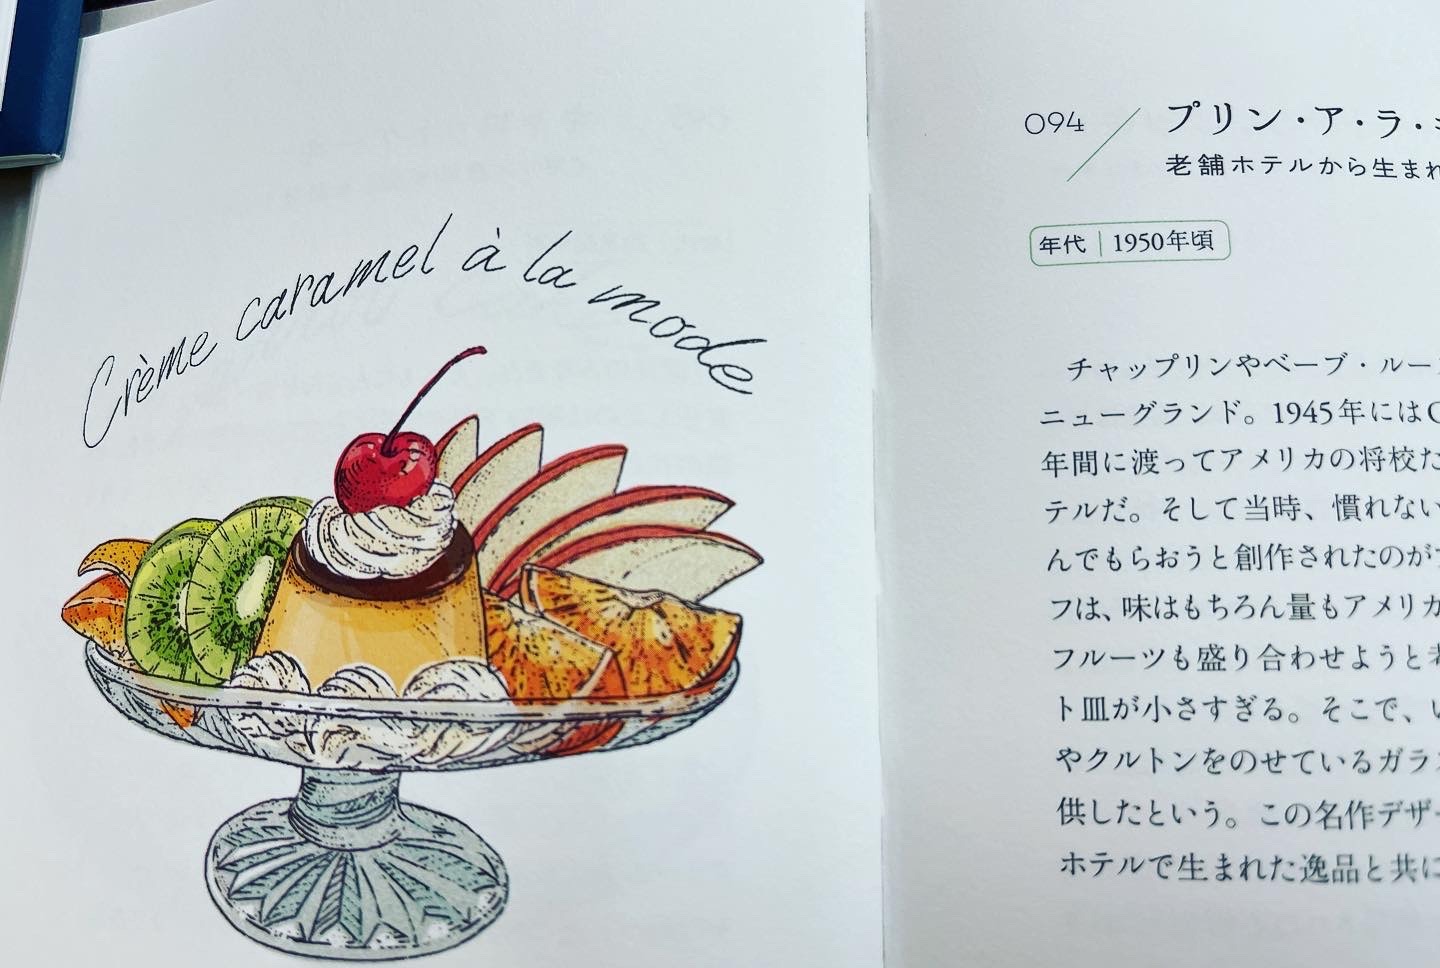 Crème caramel à la mode
094
プリン・ア・ラ・
老舗ホテルから生まれ
年代 | 1950年頃
チャップリンやベーブ・ルー
ニューグランド。1945年には
年間に渡ってアメリカの将校た
テルだ。そして当時、慣れない
んでもらおうと創作されたのが
フは、味はもちろん量もアメリカ
フルーツも盛り合わせようと考
ト皿が小さすぎる。そこで、
やクルトンをのせているガラ
供したという。この名作デザー
ホテルで生まれた逸品と共に